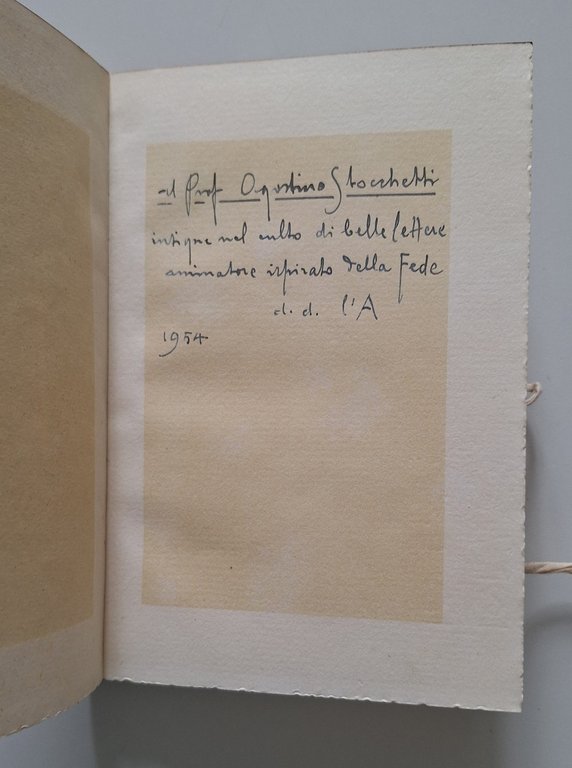 al Prof Agostino Stocchetti
insigne nel culto di belle lettere
animatore ispirato della Fede
d. d. l'A
1954